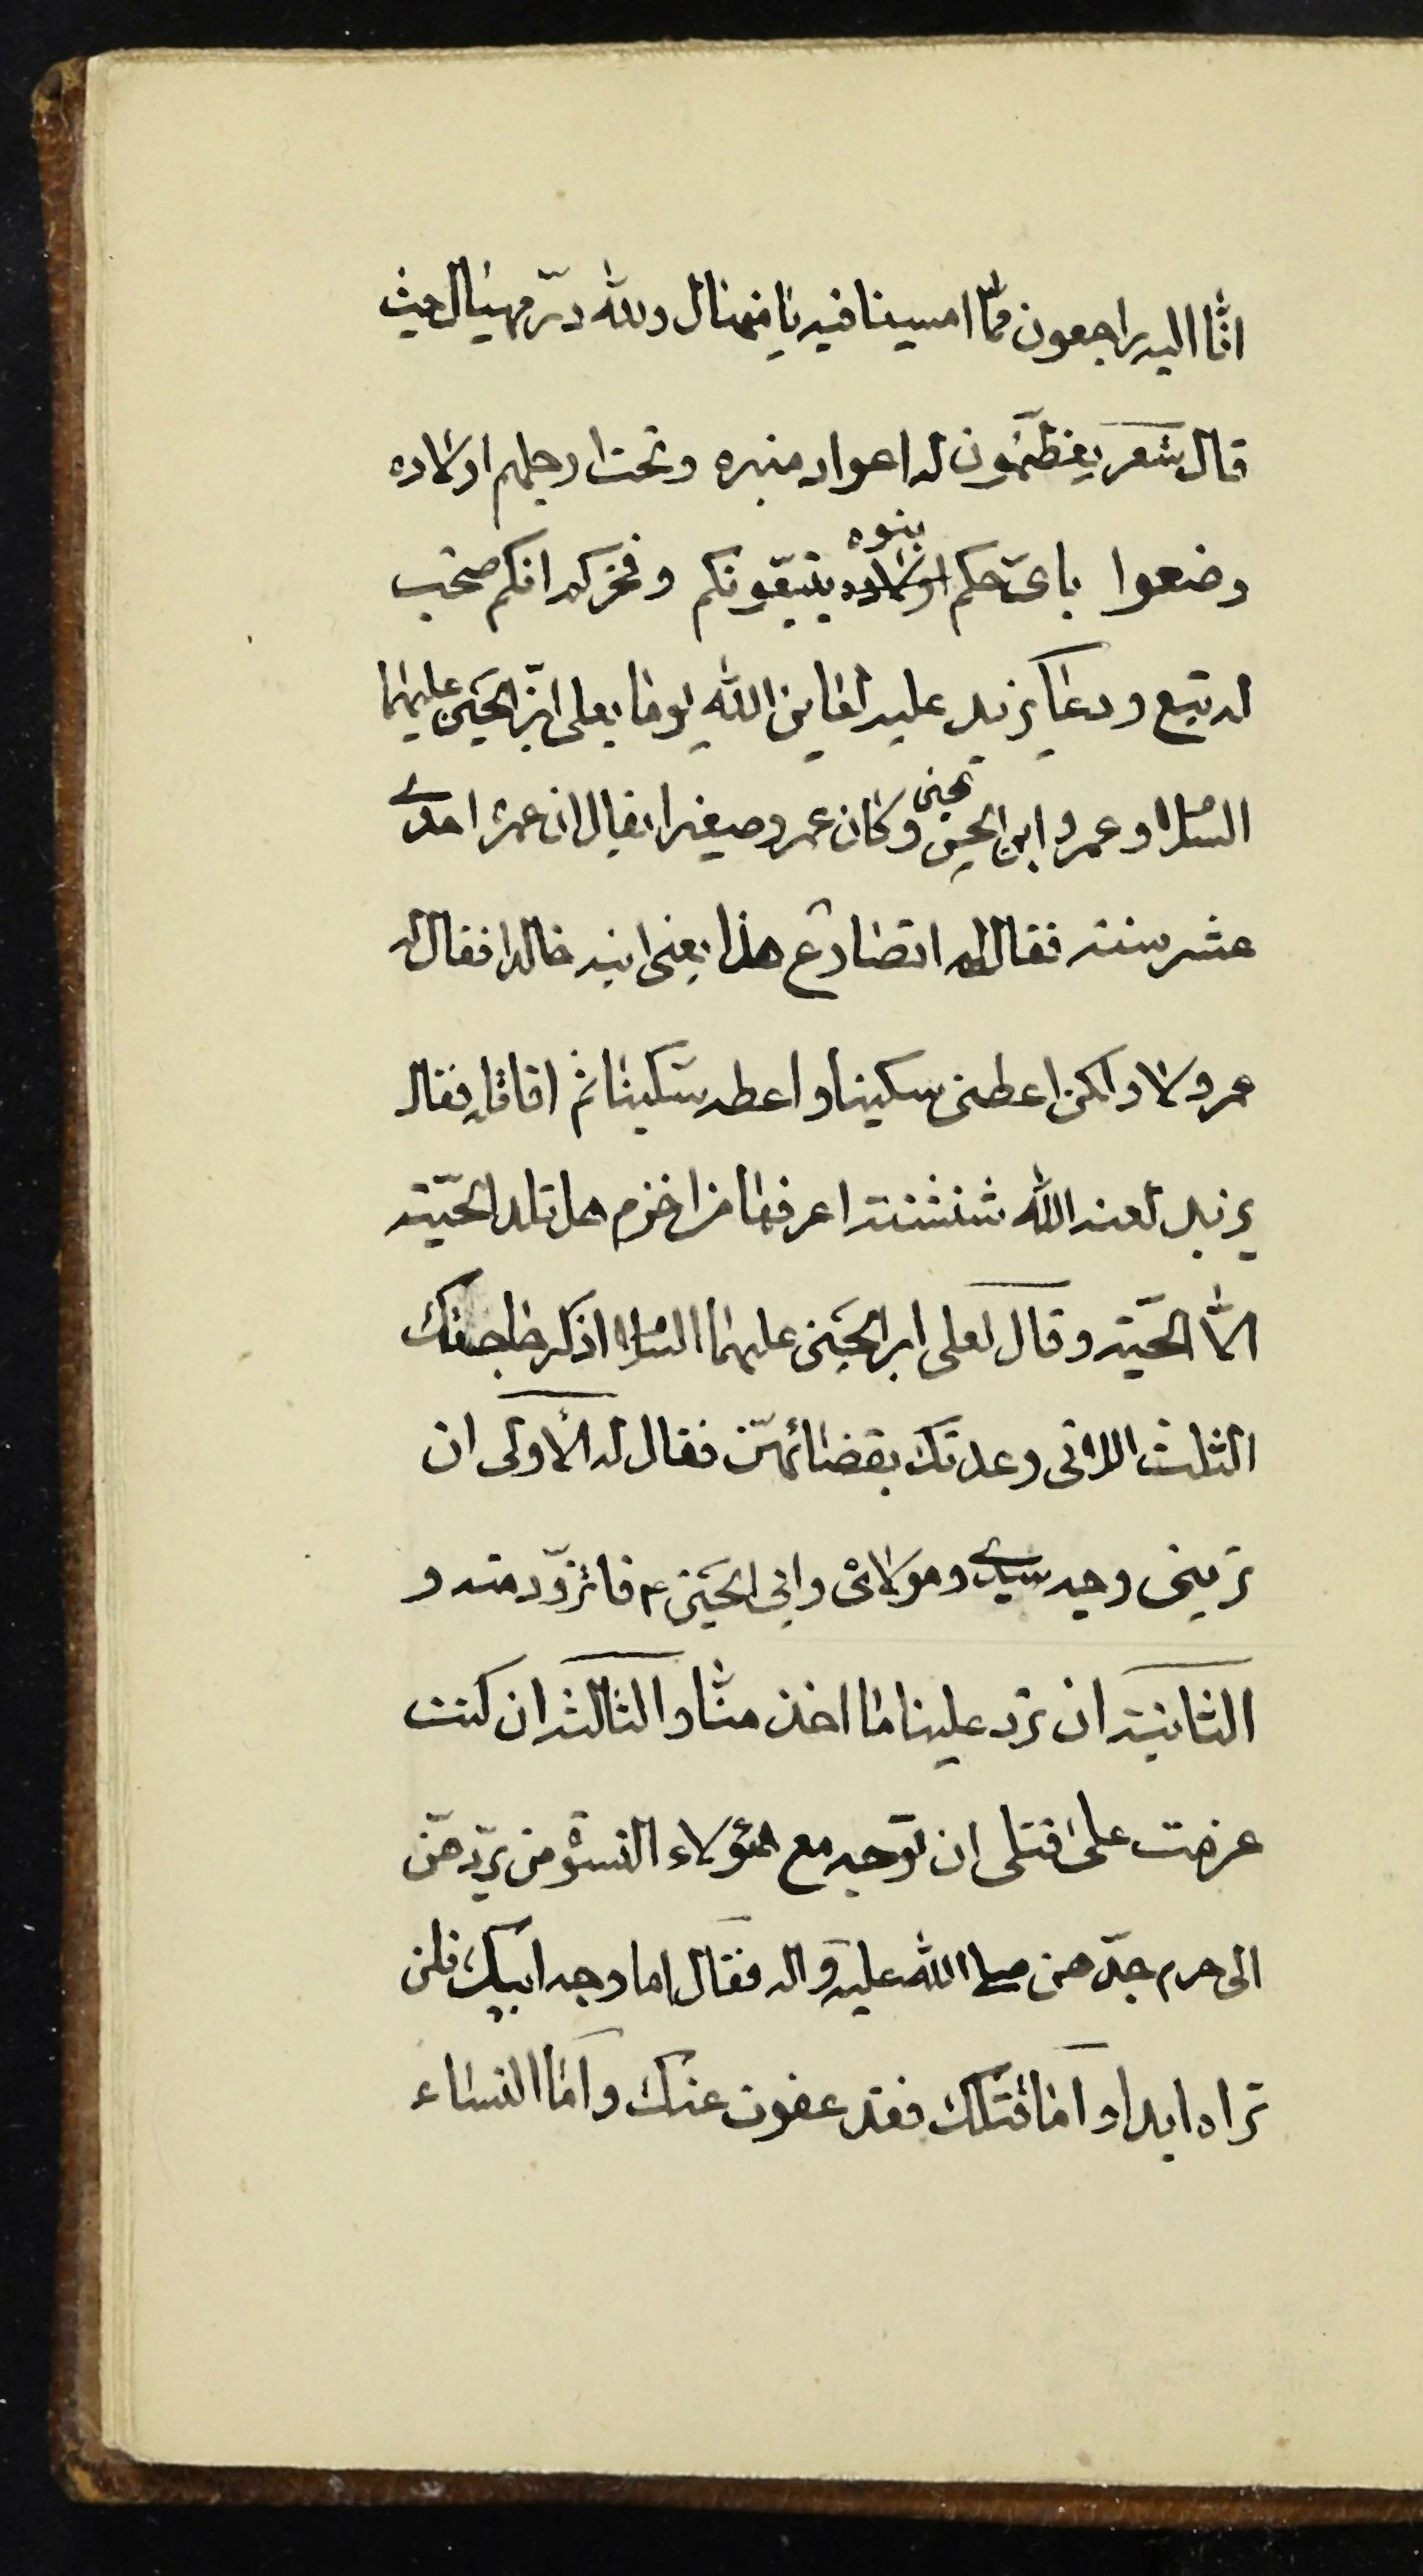 انّا اليه راجعون ممّا امسينا فيه يا منهال ولله درّ مهيال حيث
قال شعر يعظّمون له اعواد منبره وتحت ارجلهم اولاده
وضعوا باىّ حكم بنوه يتبعّونكم وفخركم انكم صحب
له تبع ودعا يزيد عليه لعاين الله يوما بعلى ابن الحسين عليهما
السلام وعمرو ابن الحسن وكان عمرو صغيرا يقال ان عمره احدى
عشر سنة فقال له اتصارع هذا يعنى ابنه خالدا فقال له
عمرو لا ولكن اعطنى سكينا واعطه سكينا ثم اقاتله فقال
يزيد لعنه الله شنشنة اعرفها من اخزم هل تلد الحيّة
الّا الحيّة وقال لعلى ابن الحسين عليهما السلام اذكر حاجتك
الثلث اللاتى وعدتك بقضائهنّ فقال له الأولى ان
ترينى وجه سيدى ومولاى وابى الحسين ع فاتزوّد منه و
الثانية ان ترد علينا ما اخذ منّا والثالثة ان كنت
عزمت على قتلى ان توجه مع هؤلاء النسوة من يردّهنّ
الى حرم جدّهن صلى الله عليه واله فقال اما وجه ابيك فلن
تراه ابدا واما قتلك فقد عفوت عنك واما النساء